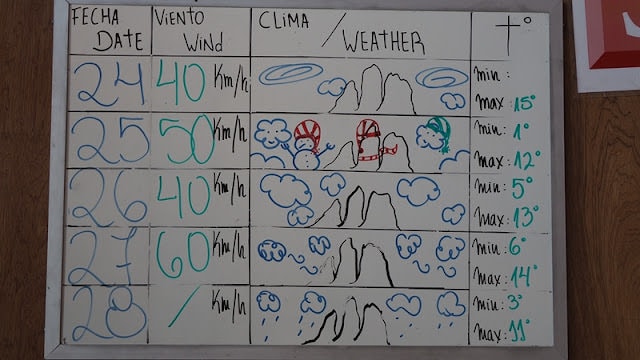 FECHA
DATE
VIENTO
WIND
CLIMA
/WEATHER
t°
24
40 Km/h
min:
max: 15°
25
50 Km/h
min: 1°
max: 12°
26
40 Km/h
min: 5°
max: 13°
27
60 Km/h
min: 6°
max: 14°
28
/ Km/h
min: 3°
max: 11°